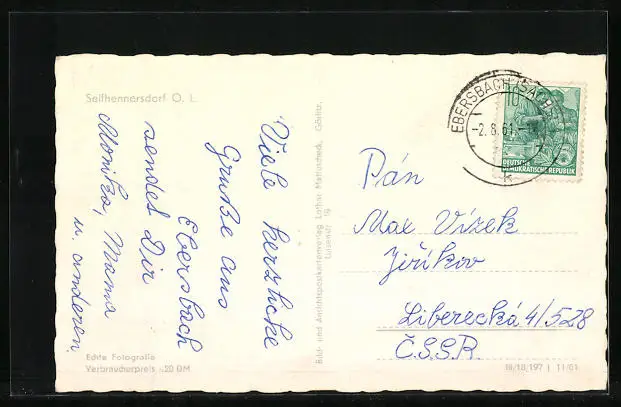 Seifhennersdorf O. L.
Viele herzliche
Grüße aus
Ebersbach
sendet Dir
Monika, Mama
u. anderen.
Echte Fotografie
Verbraucherpreis -,20 DM
Bild- und Ansichtspostkartenverlag Lothar Mattuscheck, Görlitz,
Luisenstr. 19
EBERSBACH (SACHS)
-2.8.61.-
k
10
DEUTSCHE
DEMOKRATISCHE REPUBLIK
Pán
Max Vízek
Jiříkov
Liberecká 4/528
Č.S.S.R.
III/18/197 | 11/61